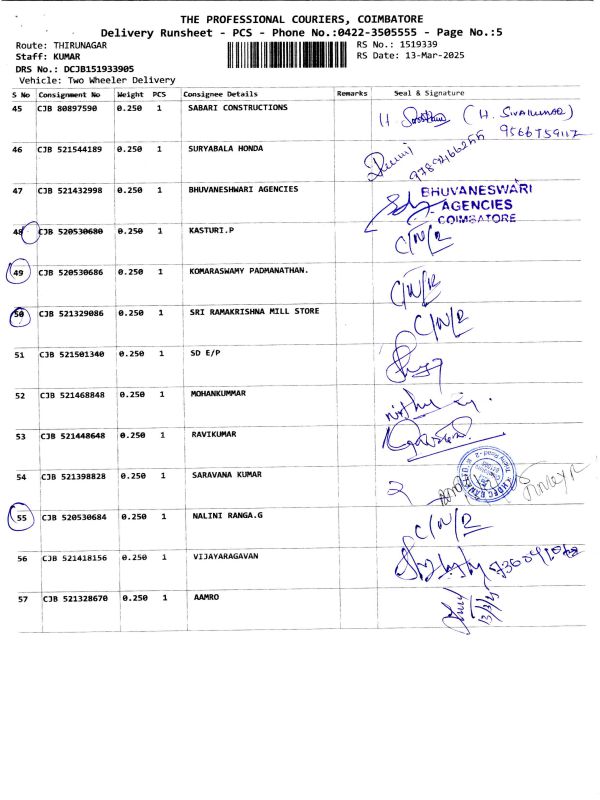 THE PROFESSIONAL COURIERS, COIMBATORE
Delivery Runsheet - PCS - Phone No.:0422-3505555 - Page No.:5
Route: THIRUNAGAR RS No.: 1519339
Staff: KUMAR RS Date: 13-Mar-2025
DRS No.: DCJB151933905
Vehicle: Two Wheeler Delivery
S No Consignment No Weight PCS Consignee Details Remarks Seal & Signature
45 CJB 80897590 0.250 1 SABARI CONSTRUCTIONS
46 CJB 521544189 0.250 1 SURYABALA HONDA
47 CJB 521432998 0.250 1 BHUVANESHWARI AGENCIES BHUVANESWARI
AGENCIES
COIMBATORE
48 CJB 520530680 0.250 1 KASTURI.P C/N/R
49 CJB 520530686 0.250 1 KOMARASWAMY PADMANATHAN. C/N/R
50 CJB 521329086 0.250 1 SRI RAMAKRISHNA MILL STORE C/N/R
51 CJB 521501340 0.250 1 SD E/P
52 CJB 521468848 0.250 1 MOHANKUMMAR
53 CJB 521448648 0.250 1 RAVIKUMAR
54 CJB 521398828 0.250 1 SARAVANA KUMAR
55 CJB 520530684 0.250 1 NALINI RANGA.G C/N/R
56 CJB 521418156 0.250 1 VIJAYARAGAVAN
57 CJB 521328670 0.250 1 AAMRO